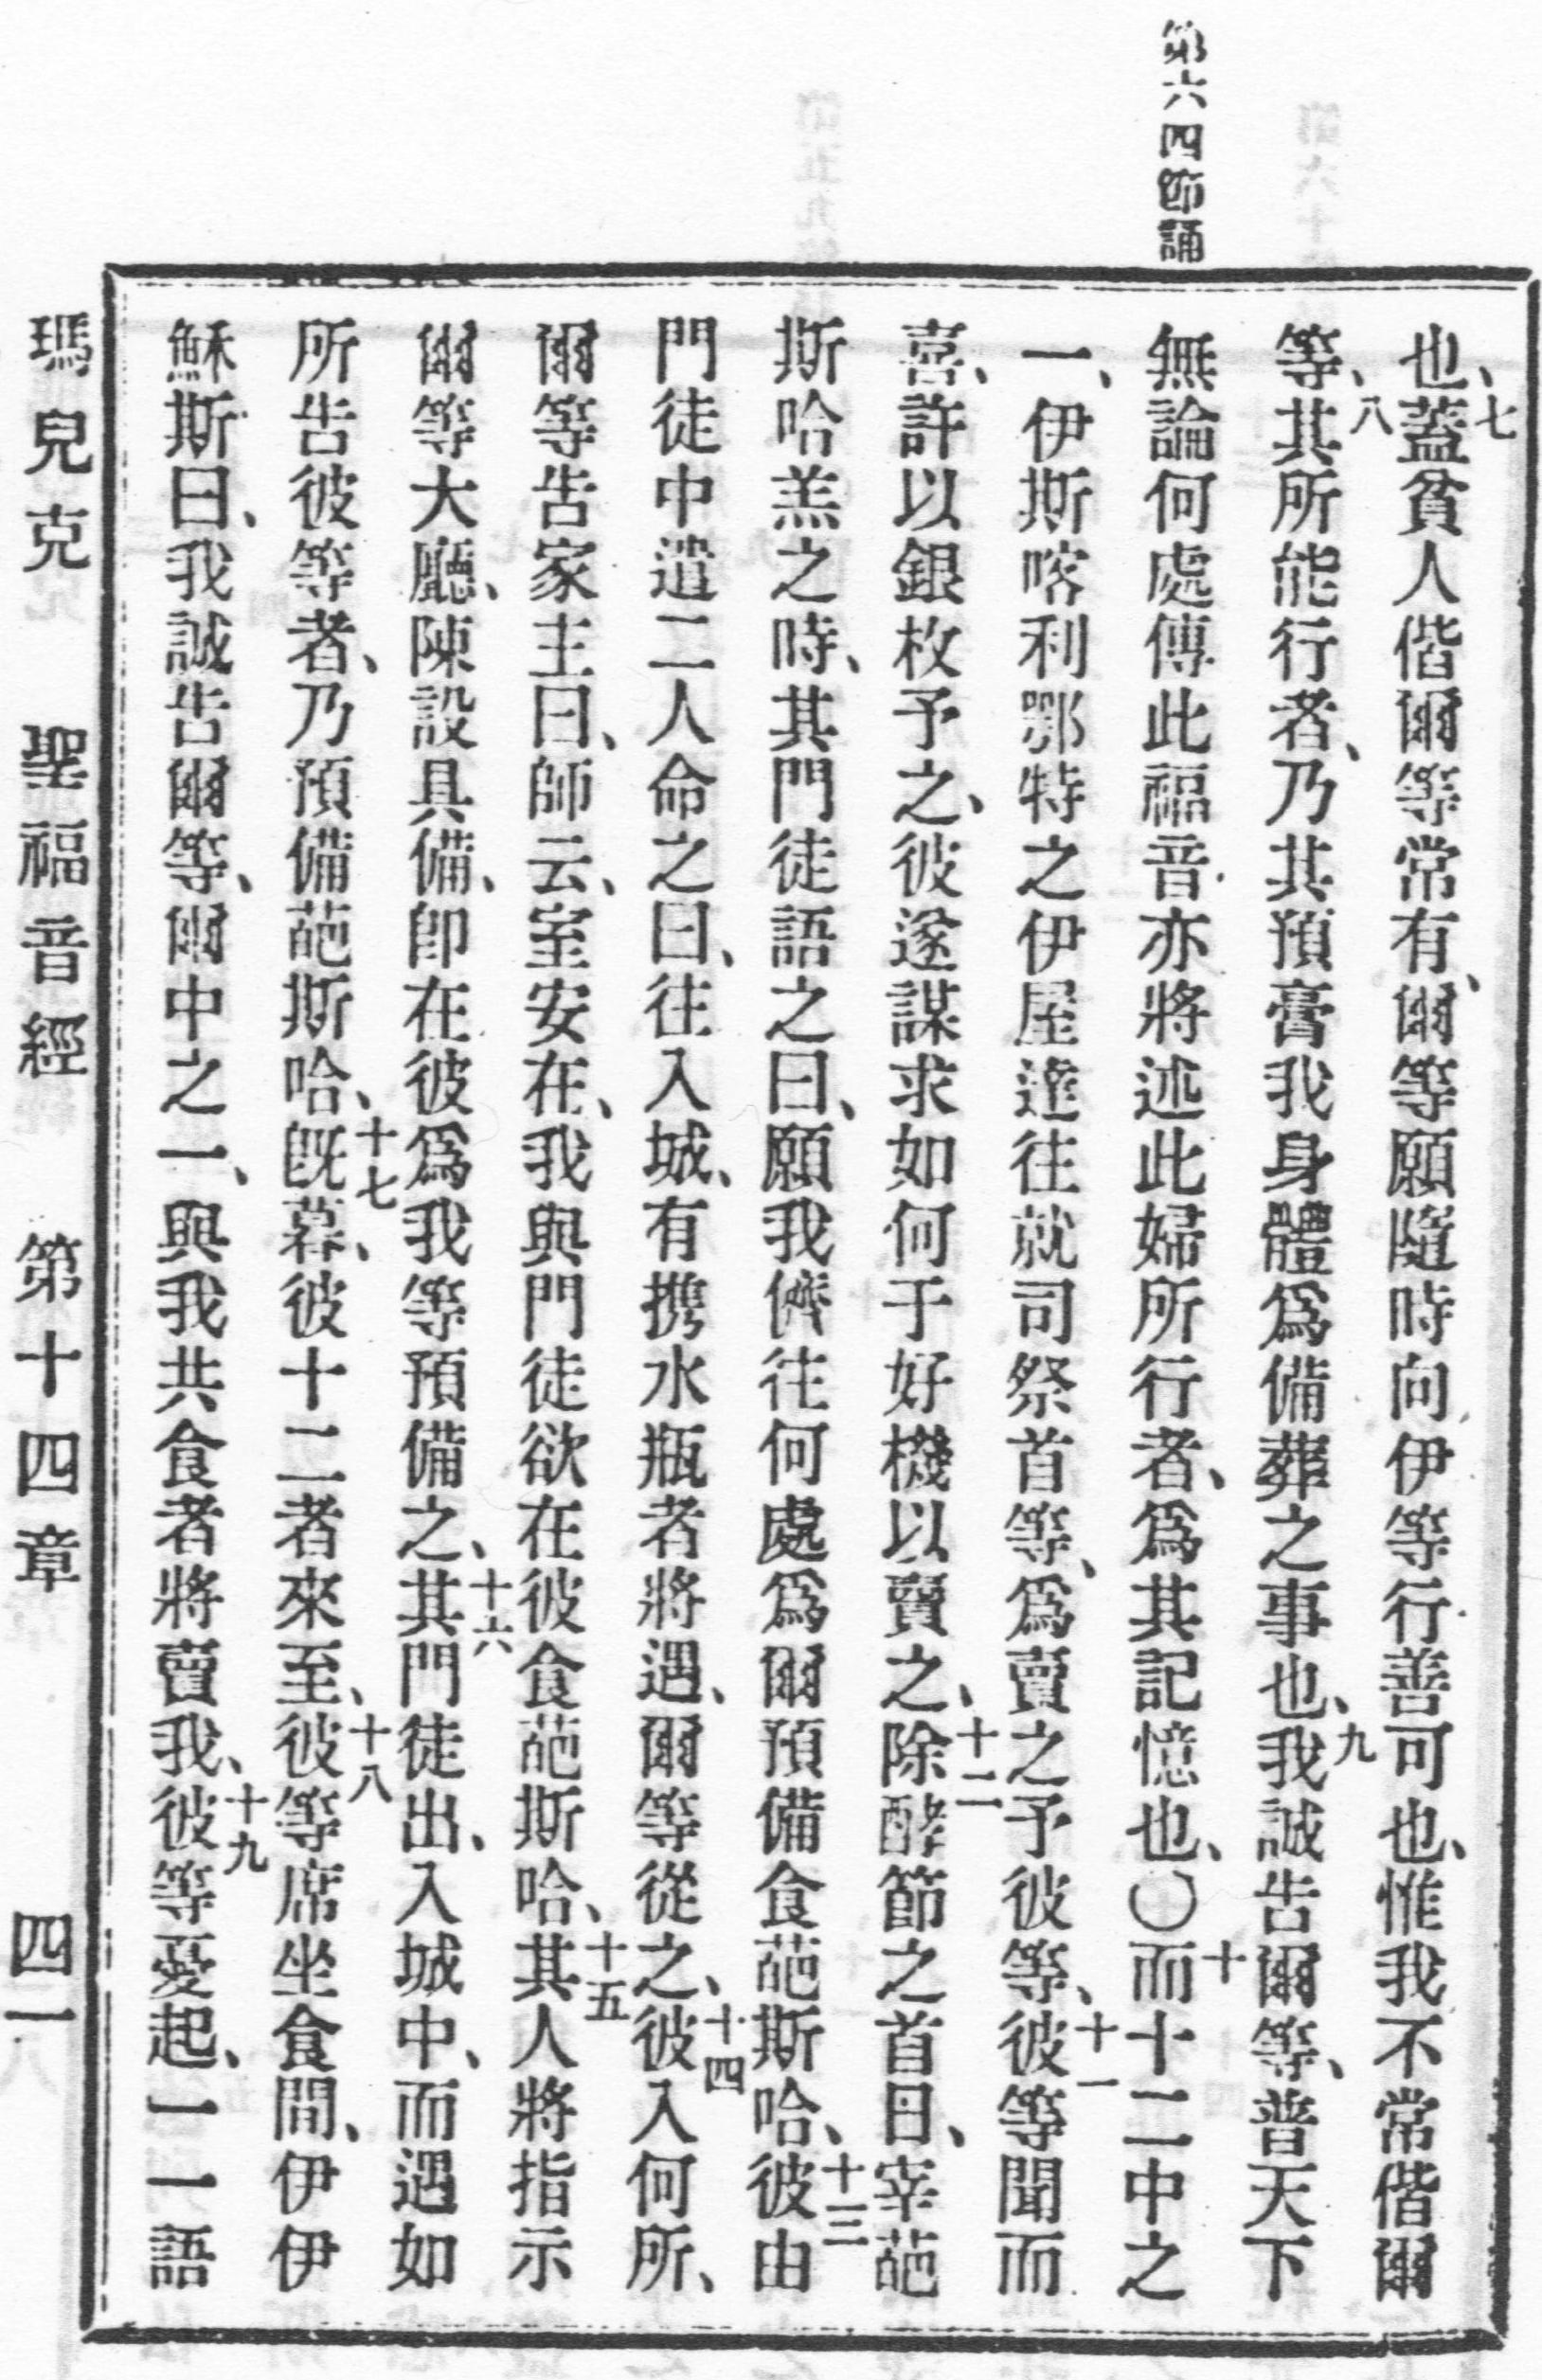 第六四節誦
也、七蓋貧人偕爾等常有、爾等願隨時向伊等行善可也、惟我不常偕爾
等、八其所能行者、乃其預膏我身體爲備葬之事也、九我誠告爾等、普天下
無論何處傳此福音亦將述此婦所行者、爲其記憶也、〇十而十二中之
一、伊斯喀利鄂特之伊屋達往就司祭首等、爲賣之予彼等、十一彼等聞而
喜、許以銀枚予之、彼遂謀求如何于好機以賣之、十二除酵節之首日、宰葩
斯哈羔之時、其門徒語之曰、願我儕往何處爲爾預備食葩斯哈、十三彼由
門徒中遣二人命之曰、往入城、有携水瓶者將遇、爾等從之、十四彼入何所、
爾等告家主曰、師云、室安在、我與門徒欲在彼食葩斯哈、十五其人將指示
爾等大廳、陳設具備、卽在彼爲我等預備之、十六其門徒出、入城中、而遇如
所告彼等者、乃預備葩斯哈、十七旣暮、彼十二者來至、十八彼等席坐食間、伊伊
穌斯曰、我誠告爾等、爾中之一、與我共食者將賣我、十九彼等憂起、一一語
瑪兒克 聖福音經 第十四章 四一